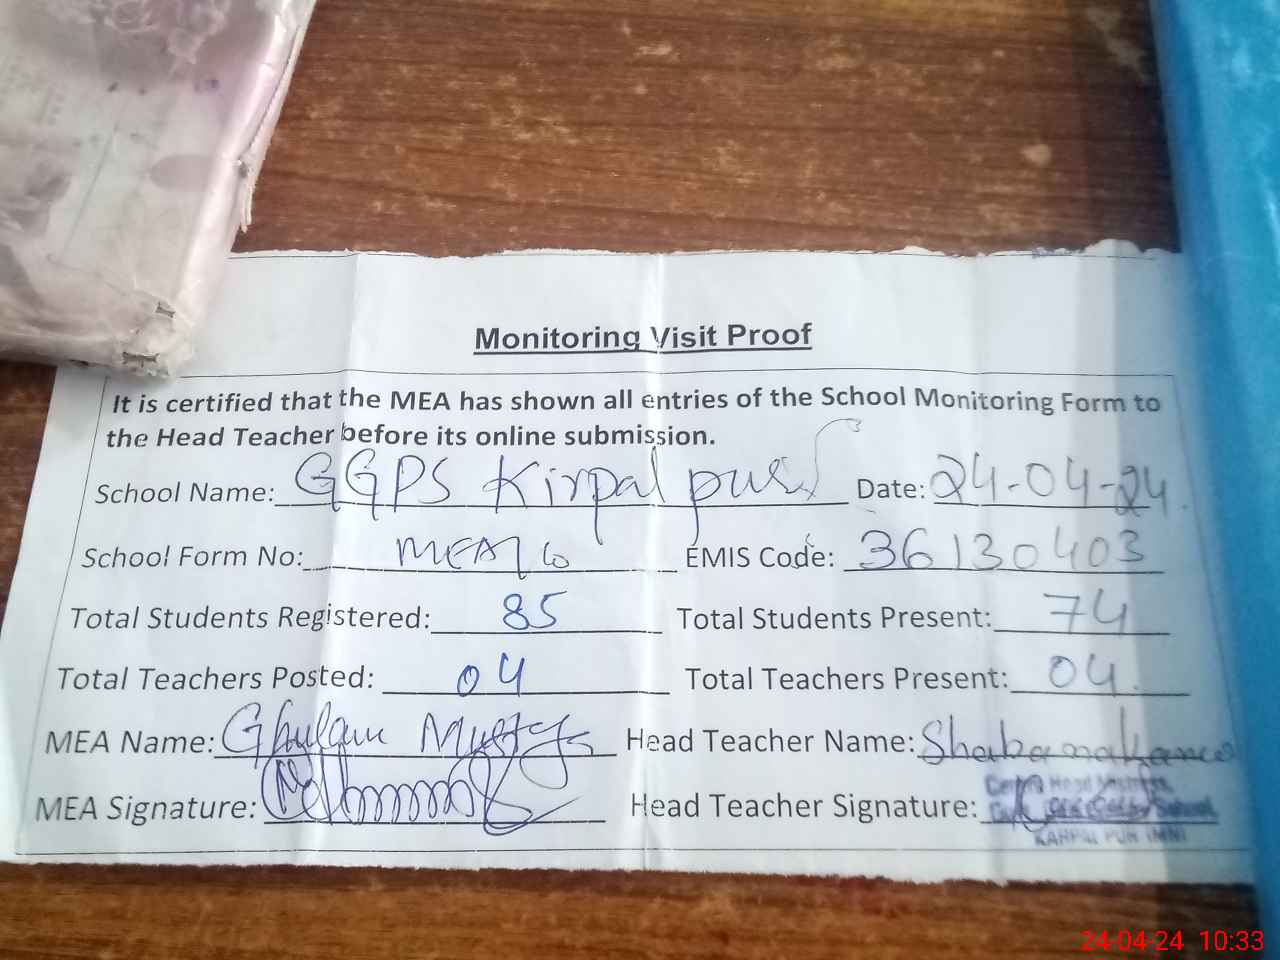 Monitoring Visit Proof
It is certified that the MEA has shown all entries of the School Monitoring Form to
the Head Teacher before its online submission.
School Name: GGPS Kirpal pur Date: 24-04-24.
School Form No: MEA/10 EMIS Code: 36130403
Total Students Registered: 85 Total Students Present: 74
Total Teachers Posted: 04 Total Teachers Present: 04.
MEA Name: Ghulam Mustafa Head Teacher Name:
MEA Signature: Head Teacher Signature:
Head School
PUR
24-04-24 10:33